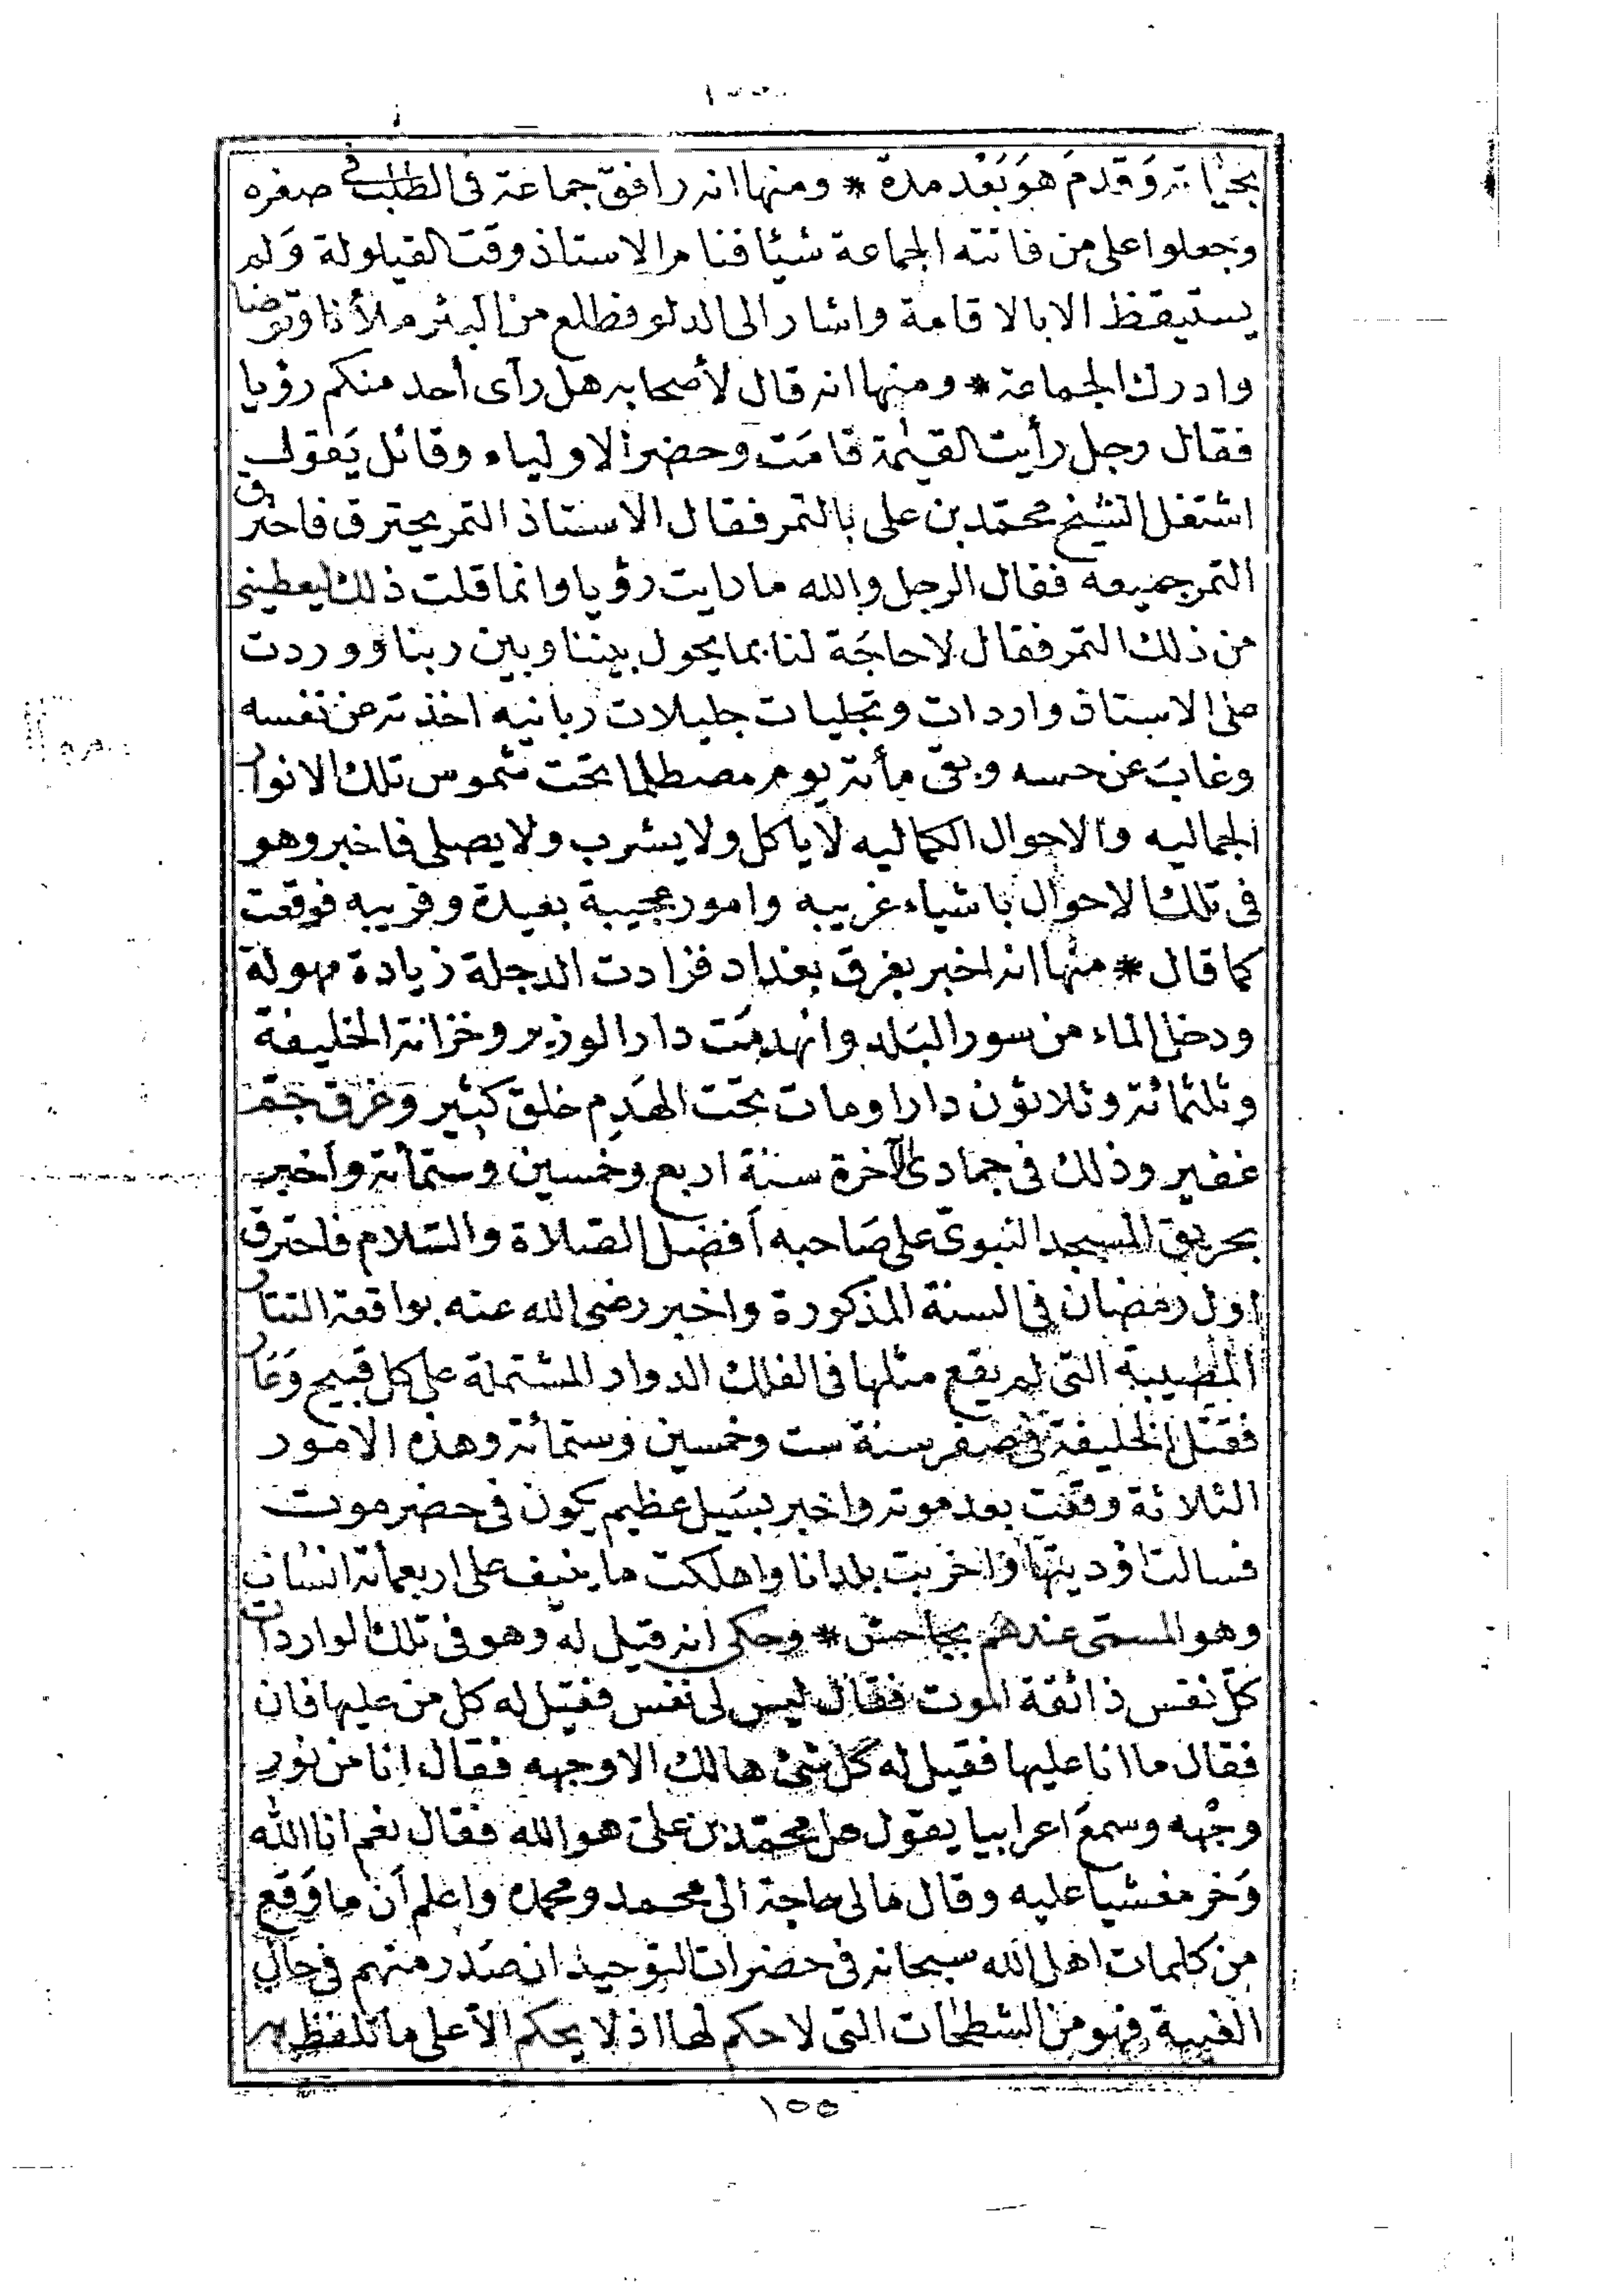 بحياته وَقدمَ هوَ بَعْد مدة * ومنها انه رافق جماعة فى الطلب فى صغره
وجعلوا على من فاتته الجماعة شيئا فنام الاستاذ وقت القيلولة وَلم
يستيقظ الا بالاقامة واشار الى الدلو فطلع من البئر ملأنا وتوضا
وادرك الجماعة * ومنها انه قال لأصحابه هل رآى أحد منكم رؤيا
فقال رجل رأيت القيٰمة قامَت وحضر الاولياء وقائل يَقول
اشتغل الشيخ محمّد بن على بالتمر فقال الاستاذ التمر يحترق فاحترق
التمر جميعه فقال الرجل والله ما رايت رؤيا وانما قلت ذلك ليعطينى
من ذلك التمر فقال لا حاجَة لنا بما يحول بيننا وبين ربنا ووردت
على الاستاذ واردات وتجليات جليلات ربانيه اخذته عن نفسه
وغابَ عن حسه وبقى مأئة يوم مصطلما تحت شموس تلك الانوار
الجماليه والاحوال الكماليه لا ياكل ولا يشرب ولا يصلى فاخبر وهو
فى تلك الاحوال باشياء غريبه وامور عجيبة بعيدة وقريبه فوقعت
كما قال * منها انه اخبر بغرق بغداد فزادت الدجلة زيادة مهولة
ودخل الماء من سور البَلد وانهدمَت دار الوزير وخزانة الخليفة
وثلثمائة وثلاثون دارا ومات تحت الهَدم خلق كثير وَغرق جمّ
غفير وذلك فى جمادى الآخرة سنة اربع وخمسين وستمأئة وأخبر
بحريق المسجد النبوىّ على صَاحبه أفضل الصّلاة والسّلام فاحترق
اول رمضان فى السنة المذكورة واخبر رضى الله عنه بواقعة التتار
المصيبة التى لم يقع مثلها فى الفلك الدوار المشتملة على كل قبيح وَعَار
فقتل الخليفة فى صفر سنة ست وخمسين وستمائة وهذه الامور
الثلاثة وقعت بعد موته واخبر بسَيل عظيم يكون فى حضرموت
فسالت اوديتها واخربت بلدانا واهلكت ما ينيف على اربعمأئة انسَان
وهو المسمّى عندهم بجاحش * وحكى انه قيل له وهو فى تلك الواردات
كلّ نفس ذائقة الموت فقال ليس لى نفس فقيل له كل من عليها فان
فقال ما انا عليها فقيل له كل شئ هالك الا وجهه فقال انا من نور
وجْهه وسمعَ اعرابيا يقول هل محمّد بن علىّ هو الله فقال نعم انا الله
وَخر مغشيا عليه وقال مالى حاجة الى محمد ومحمده واعلم أن ما وَقع
من كلمات اهل الله سبحانه فى حضرات التوحيد ان صَدر منهم فى حال
الغيبة فهو من الشطحات التى لا حكم لها اذ لا يحكم الّا على ما تلفظ به
١٥٥